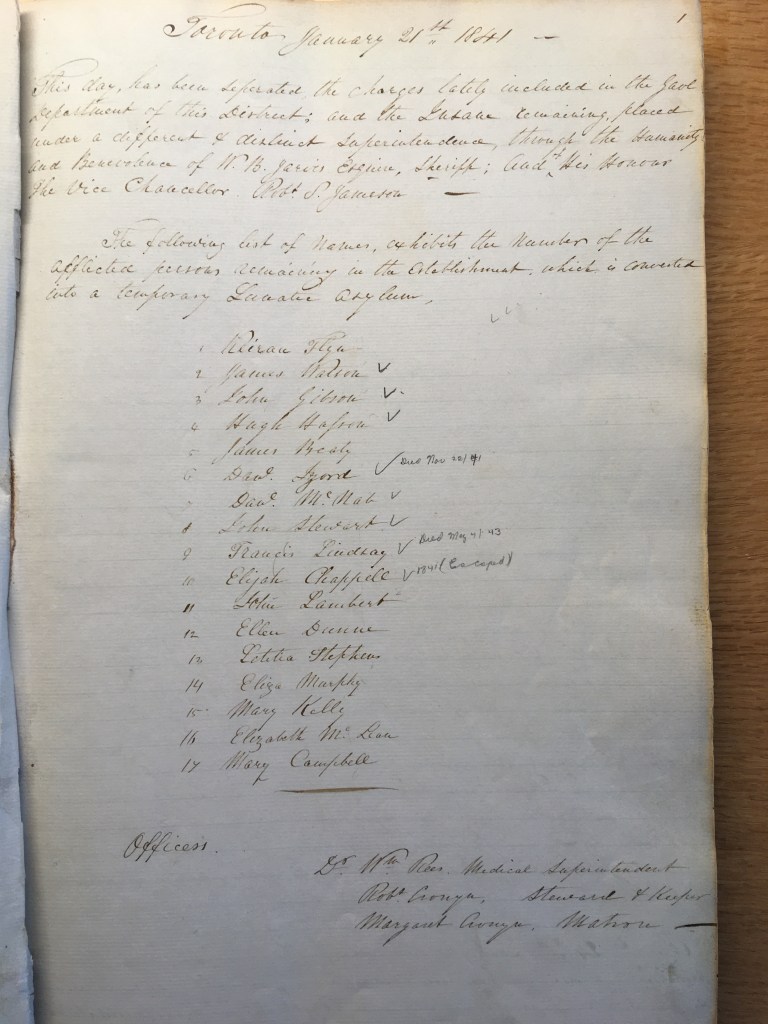 1
Toronto January 21st 1841 —
This day, has been seperated the charges lately included in the Gaol
Department of this District; and the Insane remaining, placed
under a different & distinct Superintendence, through the Humanity
and Benevolence of W. B. Jarvis Esquire, Sheriff; and His Honour
the Vice Chancellor Robt. S. Jameson —
The following list of Names, exhibits the Number of the
afflicted persons remaining in the Establishment, which is converted
into a temporary Lunatic Asylum,
1 Kieran Flyn
2 James Watson ✓
3 John Gibson ✓
4 Hugh ✓
5 James Beaty
6 Davd. ✓ Died Nov 20/41
7 Davd. McNab ✓
8 John Stewart ✓
9 Francis Lindsay ✓ Died May 4/43
10 Elijah Chappell ✓ 1841 (Escaped)
11 John Lambert
12 Ellen Dunne
13 Letitia Stephens
14 Eliza Murphy
15 Mary Kelly
16 Elizabeth McLean
17 Mary Campbell
Officers.
Dr. Wm Rees. Medical Superintendent
Robt Cronyn, Steward & Keeper
Margaret Cronyn, Matron —